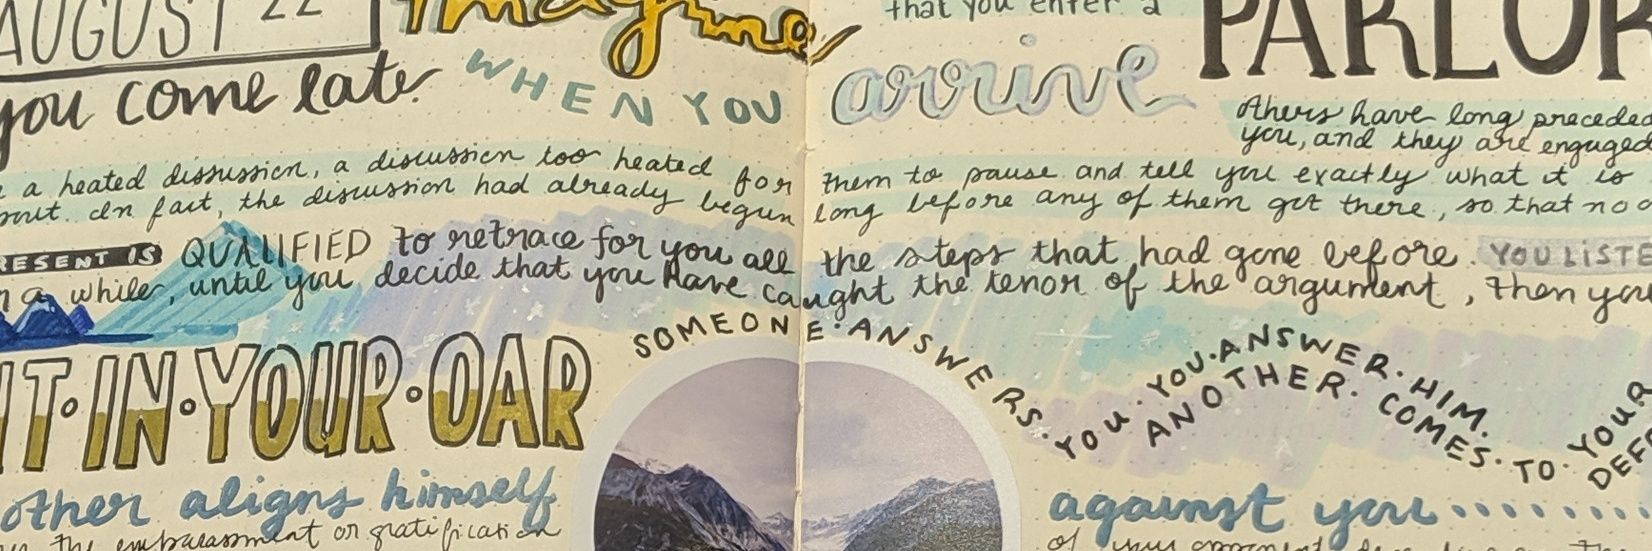 AUGUST 22 Imagine that you enter a PARLOR
you come late. WHEN YOU arrive
others have long preceded
you, and they are engaged
a heated disrussion, a discussion too heated for them to pause and tell you exactly what it is
In fact, the discussion had already begun long before any of them got there, so that no
RESENT IS QUALIFIED to retrace for you all the steps that had gone before. YOU LISTE
a while, until you decide that you have caught the tenor of the argument, then you
IT·IN·YOUR·OAR
SOMEONE·ANSWERS·YOU·YOU·ANSWER·HIM.
ANOTHER·COMES·TO·YOUR
DEFE
other aligns himself against you........
the embarassment or gratification
of your opponent